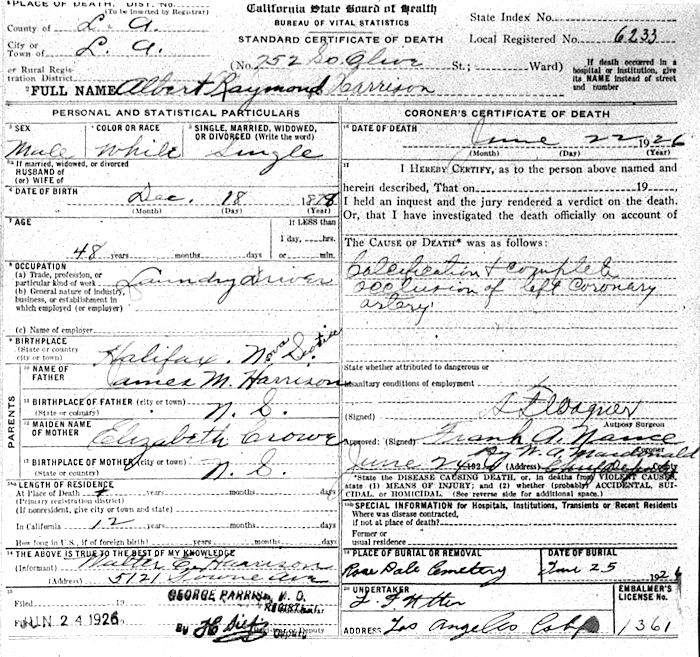 PLACE OF DEATH, DIST. NO.
(To be inserted by Registrar)
County of L. A.
City or
Town of L. A.
or Rural Regis-
tration District
California State Board of Health
BUREAU OF VITAL STATISTICS
STANDARD CERTIFICATE OF DEATH
State Index No.
Local Registered No. 6233
(No. 252 So. Olive St.; Ward)
If death occurred in a
hospital or institution, give
its NAME instead of street
and number
FULL NAME Albert Raymond Harrison
PERSONAL AND STATISTICAL PARTICULARS
SEX
Male
COLOR OR RACE
White
SINGLE, MARRIED, WIDOWED,
OR DIVORCED (Write the word)
Single
If married, widowed, or divorced
HUSBAND of
(or) WIFE of
DATE OF BIRTH
Dec. 18 1878
(Month) (Day) (Year)
AGE
48 years months days
If LESS than
1 day, hrs.
or min.
OCCUPATION
(a) Trade, profession, or
particular kind of work Laundry driver
(b) General nature of industry,
business, or establishment in
which employed (or employer)
(c) Name of employer
BIRTHPLACE
(State or country
city or town)
Halifax. Nova Scotia
PARENTS
NAME OF
FATHER
James M. Harrison
BIRTHPLACE OF FATHER (city or town)
(State or country)
N. S.
MAIDEN NAME
OF MOTHER
Elizabeth Crowe
BIRTHPLACE OF MOTHER (city or town)
(State or country)
N. S.
LENGTH OF RESIDENCE
At Place of Death years months days
(Primary registration district)
(If nonresident, give city or town and state)
In California 12 years months days
How long in U.S., if of foreign birth? years months days
THE ABOVE IS TRUE TO THE BEST OF MY KNOWLEDGE
(Informant) Walter E. Harrison
(Address) 5121 Towne Ave
Filed 19
JUN 24 1926
GEORGE PARRISH, M. D.
By
Registrar or Deputy
CORONER'S CERTIFICATE OF DEATH
DATE OF DEATH
June 22 1926
(Month) (Day) (Year)
I HEREBY CERTIFY, as to the person above named and
herein described, That on 19 ,
I held an inquest and the jury rendered a verdict on the death.
Or, that I have investigated the death officially on account of
The CAUSE OF DEATH* was as follows:
Calcification & complete
occlusion of left coronary
artery
State whether attributed to dangerous or
insanitary conditions of employment
(Signed) A F Wagner
Autopsy Surgeon
Approved: (Signed) Frank A. Nance
Coroner
By W. A. Macdonald
June 192 (Address)
*State the DISEASE CAUSING DEATH, or, in deaths from VIOLENT CAUSES,
state (1) MEANS OF INJURY; and (2) whether (probably) ACCIDENTAL, SUI-
CIDAL, or HOMICIDAL. (See reverse side for additional space.)
SPECIAL INFORMATION for Hospitals, Institutions, Transients or Recent Residents
Where was disease contracted,
if not at place of death?
Former or
usual residence
PLACE OF BURIAL OR REMOVAL
Rose Dale Cemetery
DATE OF BURIAL
June 25 1926
UNDERTAKER
ADDRESS Los Angeles
EMBALMER'S
LICENSE No.
1361